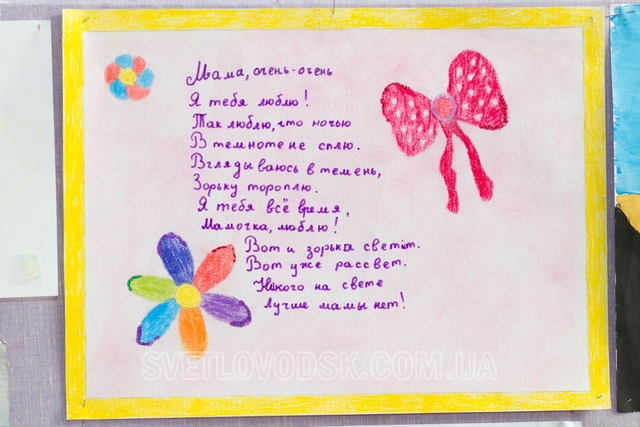 Мама, очень-очень
Я тебя люблю!
Так люблю, что ночью
В темноте не сплю.
Вглядываюсь в темень,
Зорьку тороплю.
Я тебя всё время,
Мамочка, люблю!
Вот и зорька светит.
Вот уже рассвет.
Никого на свете
Лучше мамы нет!
SVETLOVODSK.COM.UA